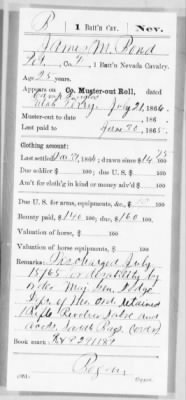 P 1 Batt'n Cav. Nev.
James M. Pond
Co. 1 Batt'n Nevada Cavalry.
Age 25 years.
Appears on Co. Muster-out Roll, dated
Utah Terry. July 21, 1866.
Muster-out to date , 186 .
Last paid to June 30, 1865.
Clothing account:
Last settled 31, 186 ; drawn since $ 14 100
Due soldier $ 100; due U. S. $ 100
Am't for cloth'g in kind or money adv'd $ 100
Due U. S. for arms, equipments, &c., $ 100
Bounty paid $ 140 100; due $ 160 100
Valuation of horse, $ 100
Valuation of horse equipments, $ 100
Remarks: Discharged July
18/65 for disability by
order Maj Gen. Dodge
retained
1 Rifle Revolver Sabre and
Book mark: R & P 291189
(361)
Copyist.